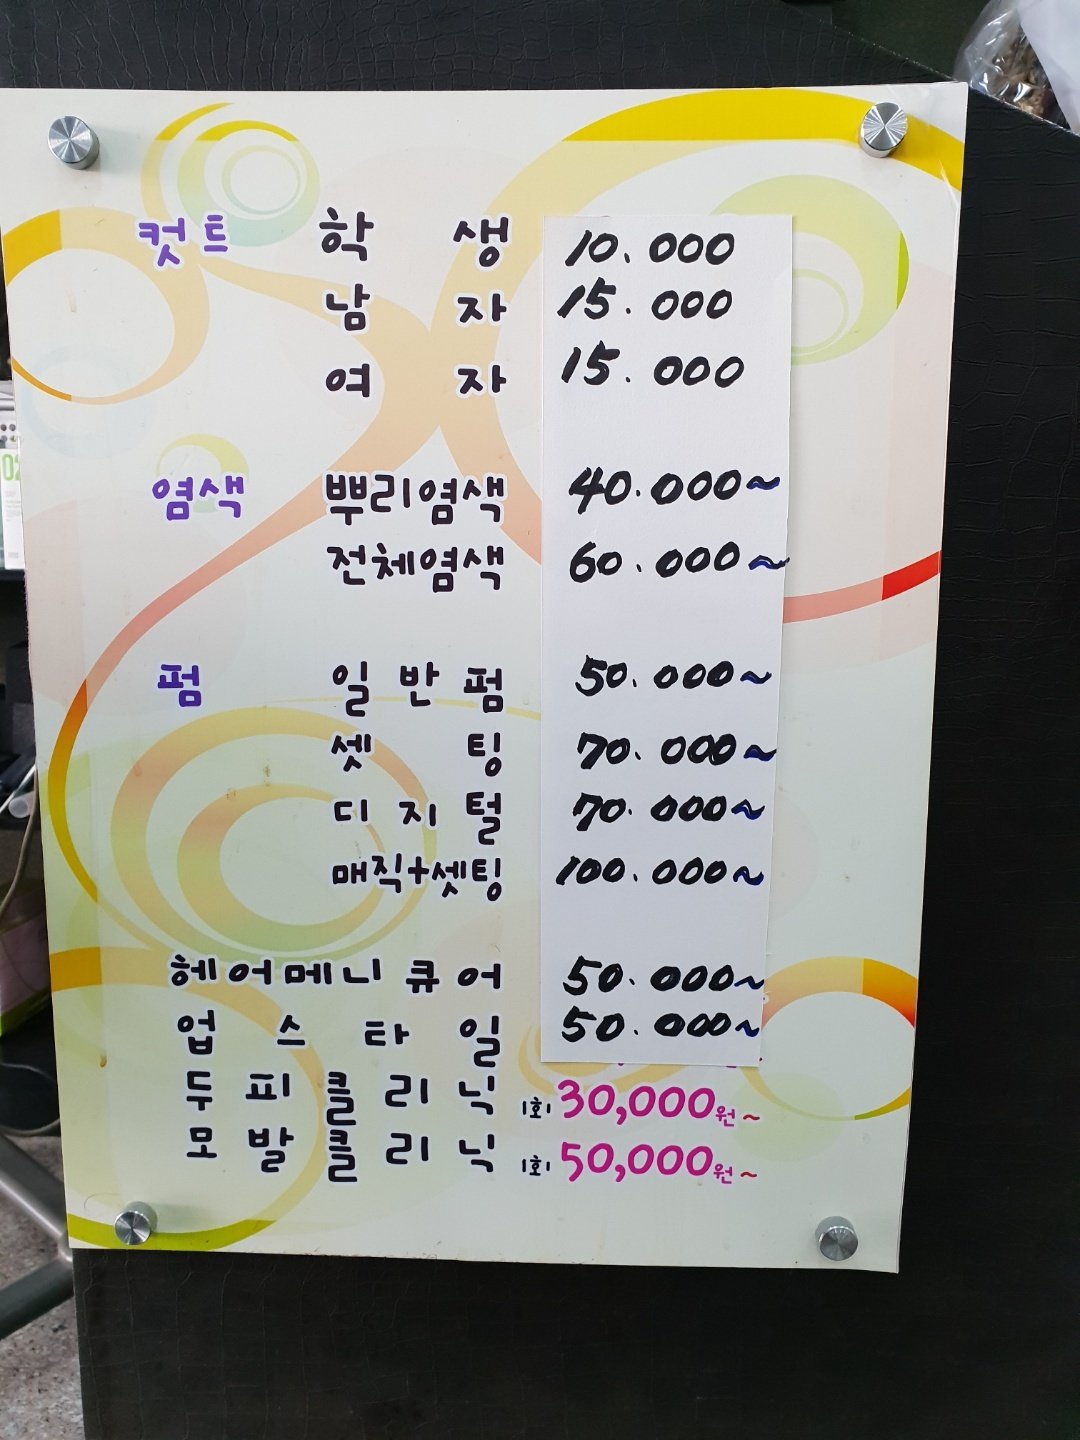 컷트 학생 10.000
남자 15.000
여자 15.000
염색 뿌리염색 40.000~
전체염색 60.000~
펌 일반펌 50.000~
셋팅 70.000~
디지털 70.000~
매직+셋팅 100.000~
헤어메니큐어 50.000~
업스타일 50.000~
두피클리닉 1회 30,000원~
모발클리닉 1회 50,000원~
02